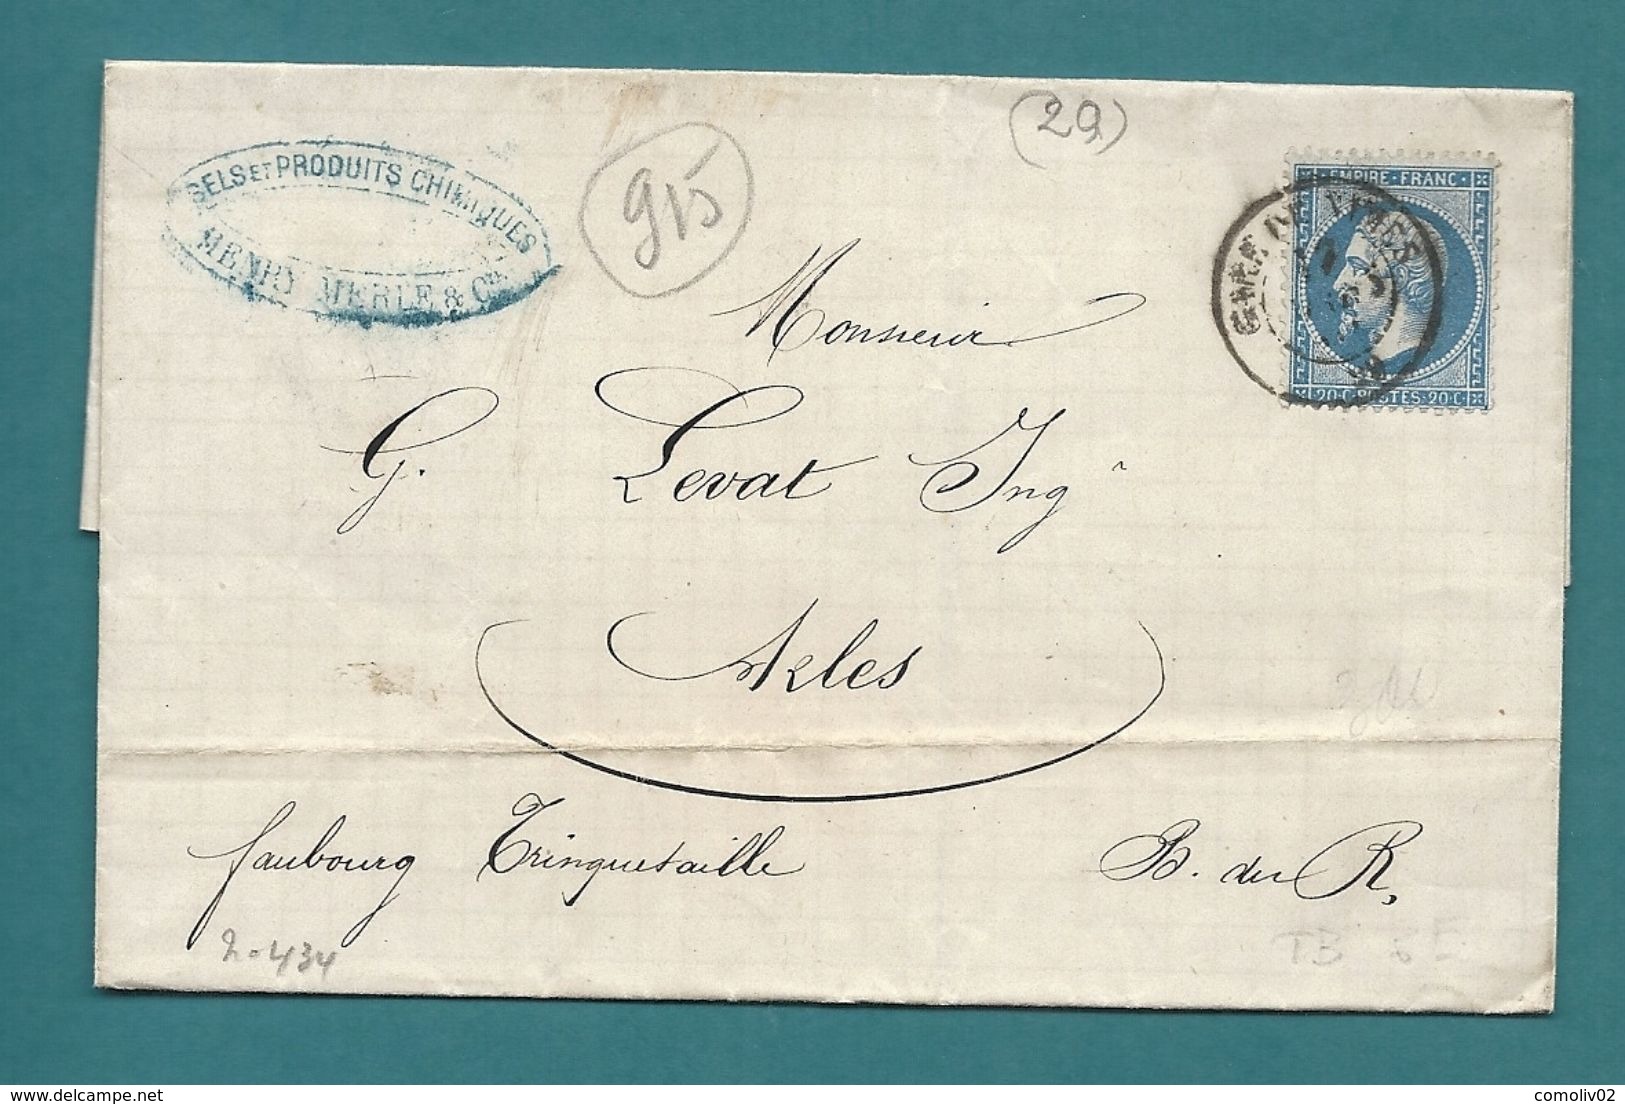 SELS ET PRODUITS CHIMIQUES
HENRY MERLE & Cie
915
(29)
EMPIRE · FRANC ·
20 · C · POSTES · 20 · C ·
GARE DE NIMES
Monsieur
G. Levat Ingr
Arles
faubourg Trinquetaille B. du R.
2-434
TB
delcampe.net
comoliv02